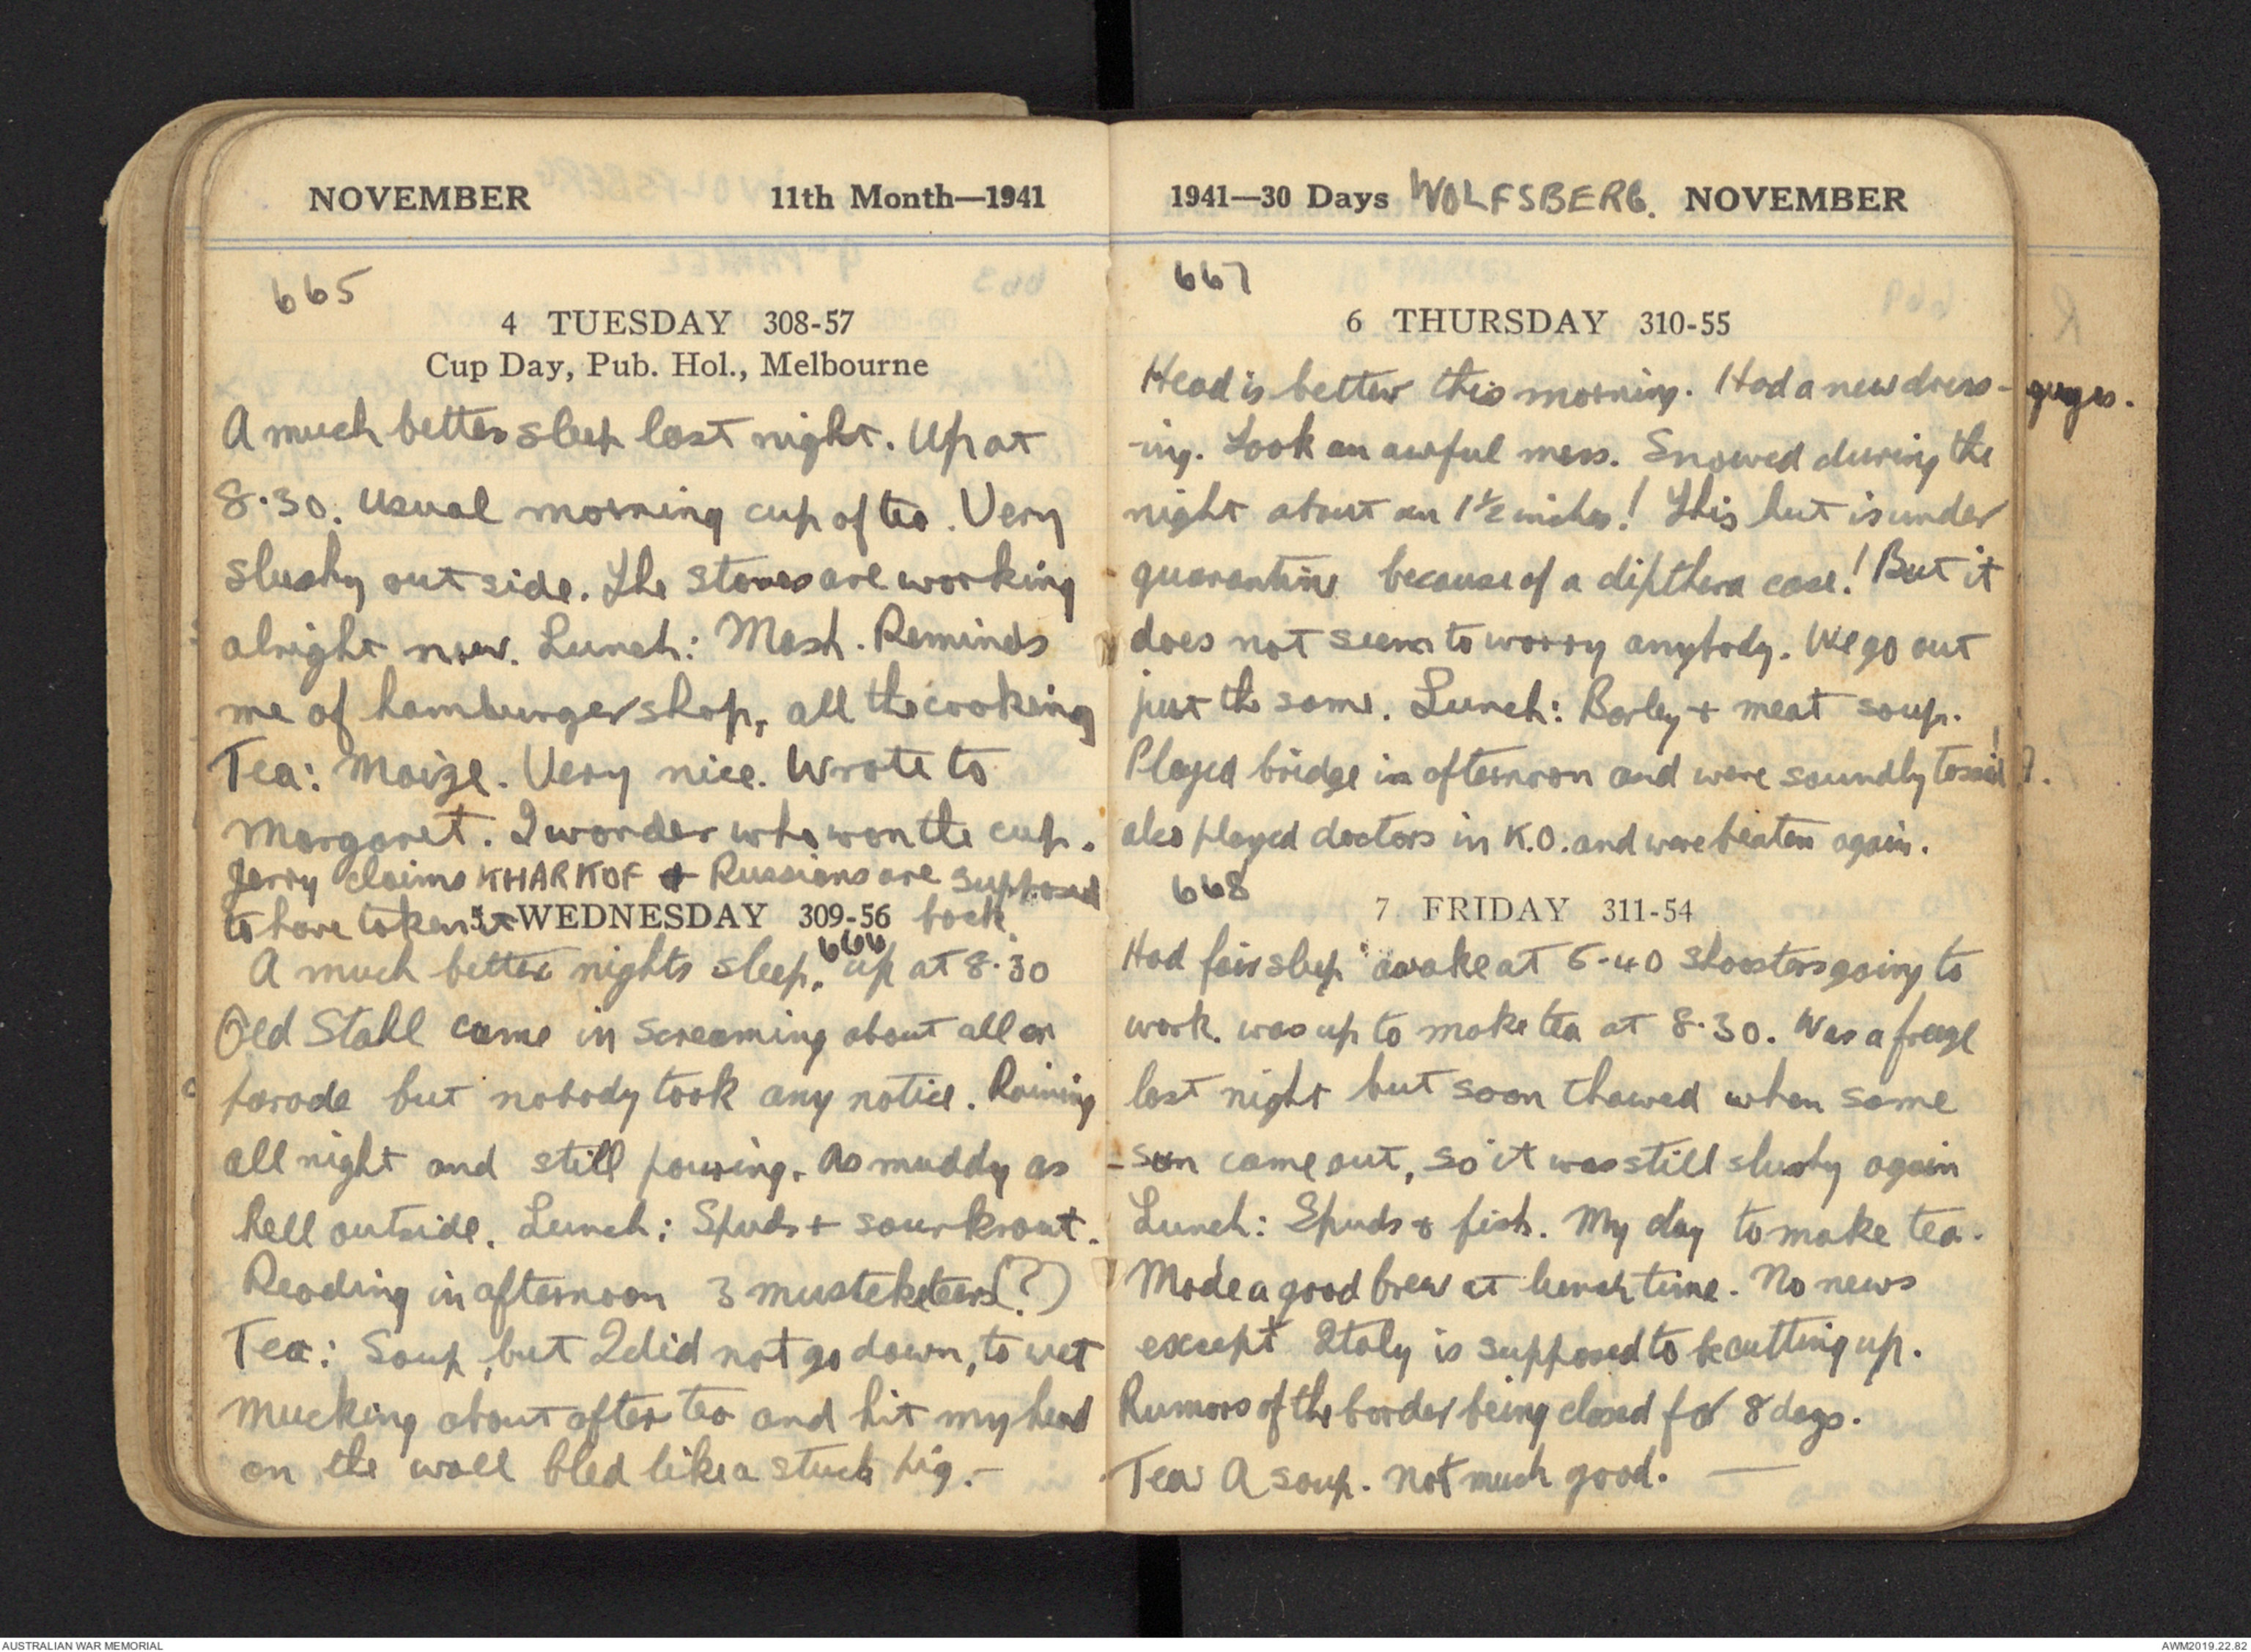 NOVEMBER 11th Month—1941
665
4 TUESDAY 308-57
Cup Day, Pub. Hol., Melbourne
A much better sleep last night. Up at
8.30. Usual morning cup of tea. Very
slushy outside. The stoves are working
alright now. Lunch: Mash. Reminds
me of hamburger shop, all the cooking
Tea: Maize. Very nice. Wrote to
Margaret. I wonder who won the cup.
Jerry claims KHARKOF & Russians are supposed
to have taken it back.
5 WEDNESDAY 309-56
666
A much better nights sleep. up at 8.30
Old Stahl came in screaming about all on
parade but nobody took any notice. Raining
all night and still pouring. As muddy as
hell outside. Lunch: Spuds + sourkrout.
Reading in afternoon 3 musteketeers(?)
Tea: Soup, but I did not go down, to wet
Mucking about after tea and hit my head
on the wall bled like a stuck pig.—
1941—30 Days WOLFSBERG. NOVEMBER
667
6 THURSDAY 310-55
Head is better this morning. Had a new dress-
-ing. Look an awful mess. Snowed during the
night about an 1½ inches! This hut is under
quarantine because of a dipthera case! But it
does not seem to worry anybody. We go out
just the same. Lunch: Barley + meat soup.
Played bridge in afternoon and were soundly tossed!
also played doctors in K.O. and were beaten again.
668
7 FRIDAY 311-54
Had fair sleep awake at 6-40 shoosters going to
work. was up to make tea at 8.30. Was a freeze
last night but soon thawed when some
sun came out, so it was still slushy again
Lunch: Spuds & fish. My day to make tea.
Made a good brew at lunch time. No news
except Italy is supposed to be cutting up.
Rumors of the border being closed for 8 days.
Tea A soup. not much good. —
AUSTRALIAN WAR MEMORIAL AWM2019.22.82